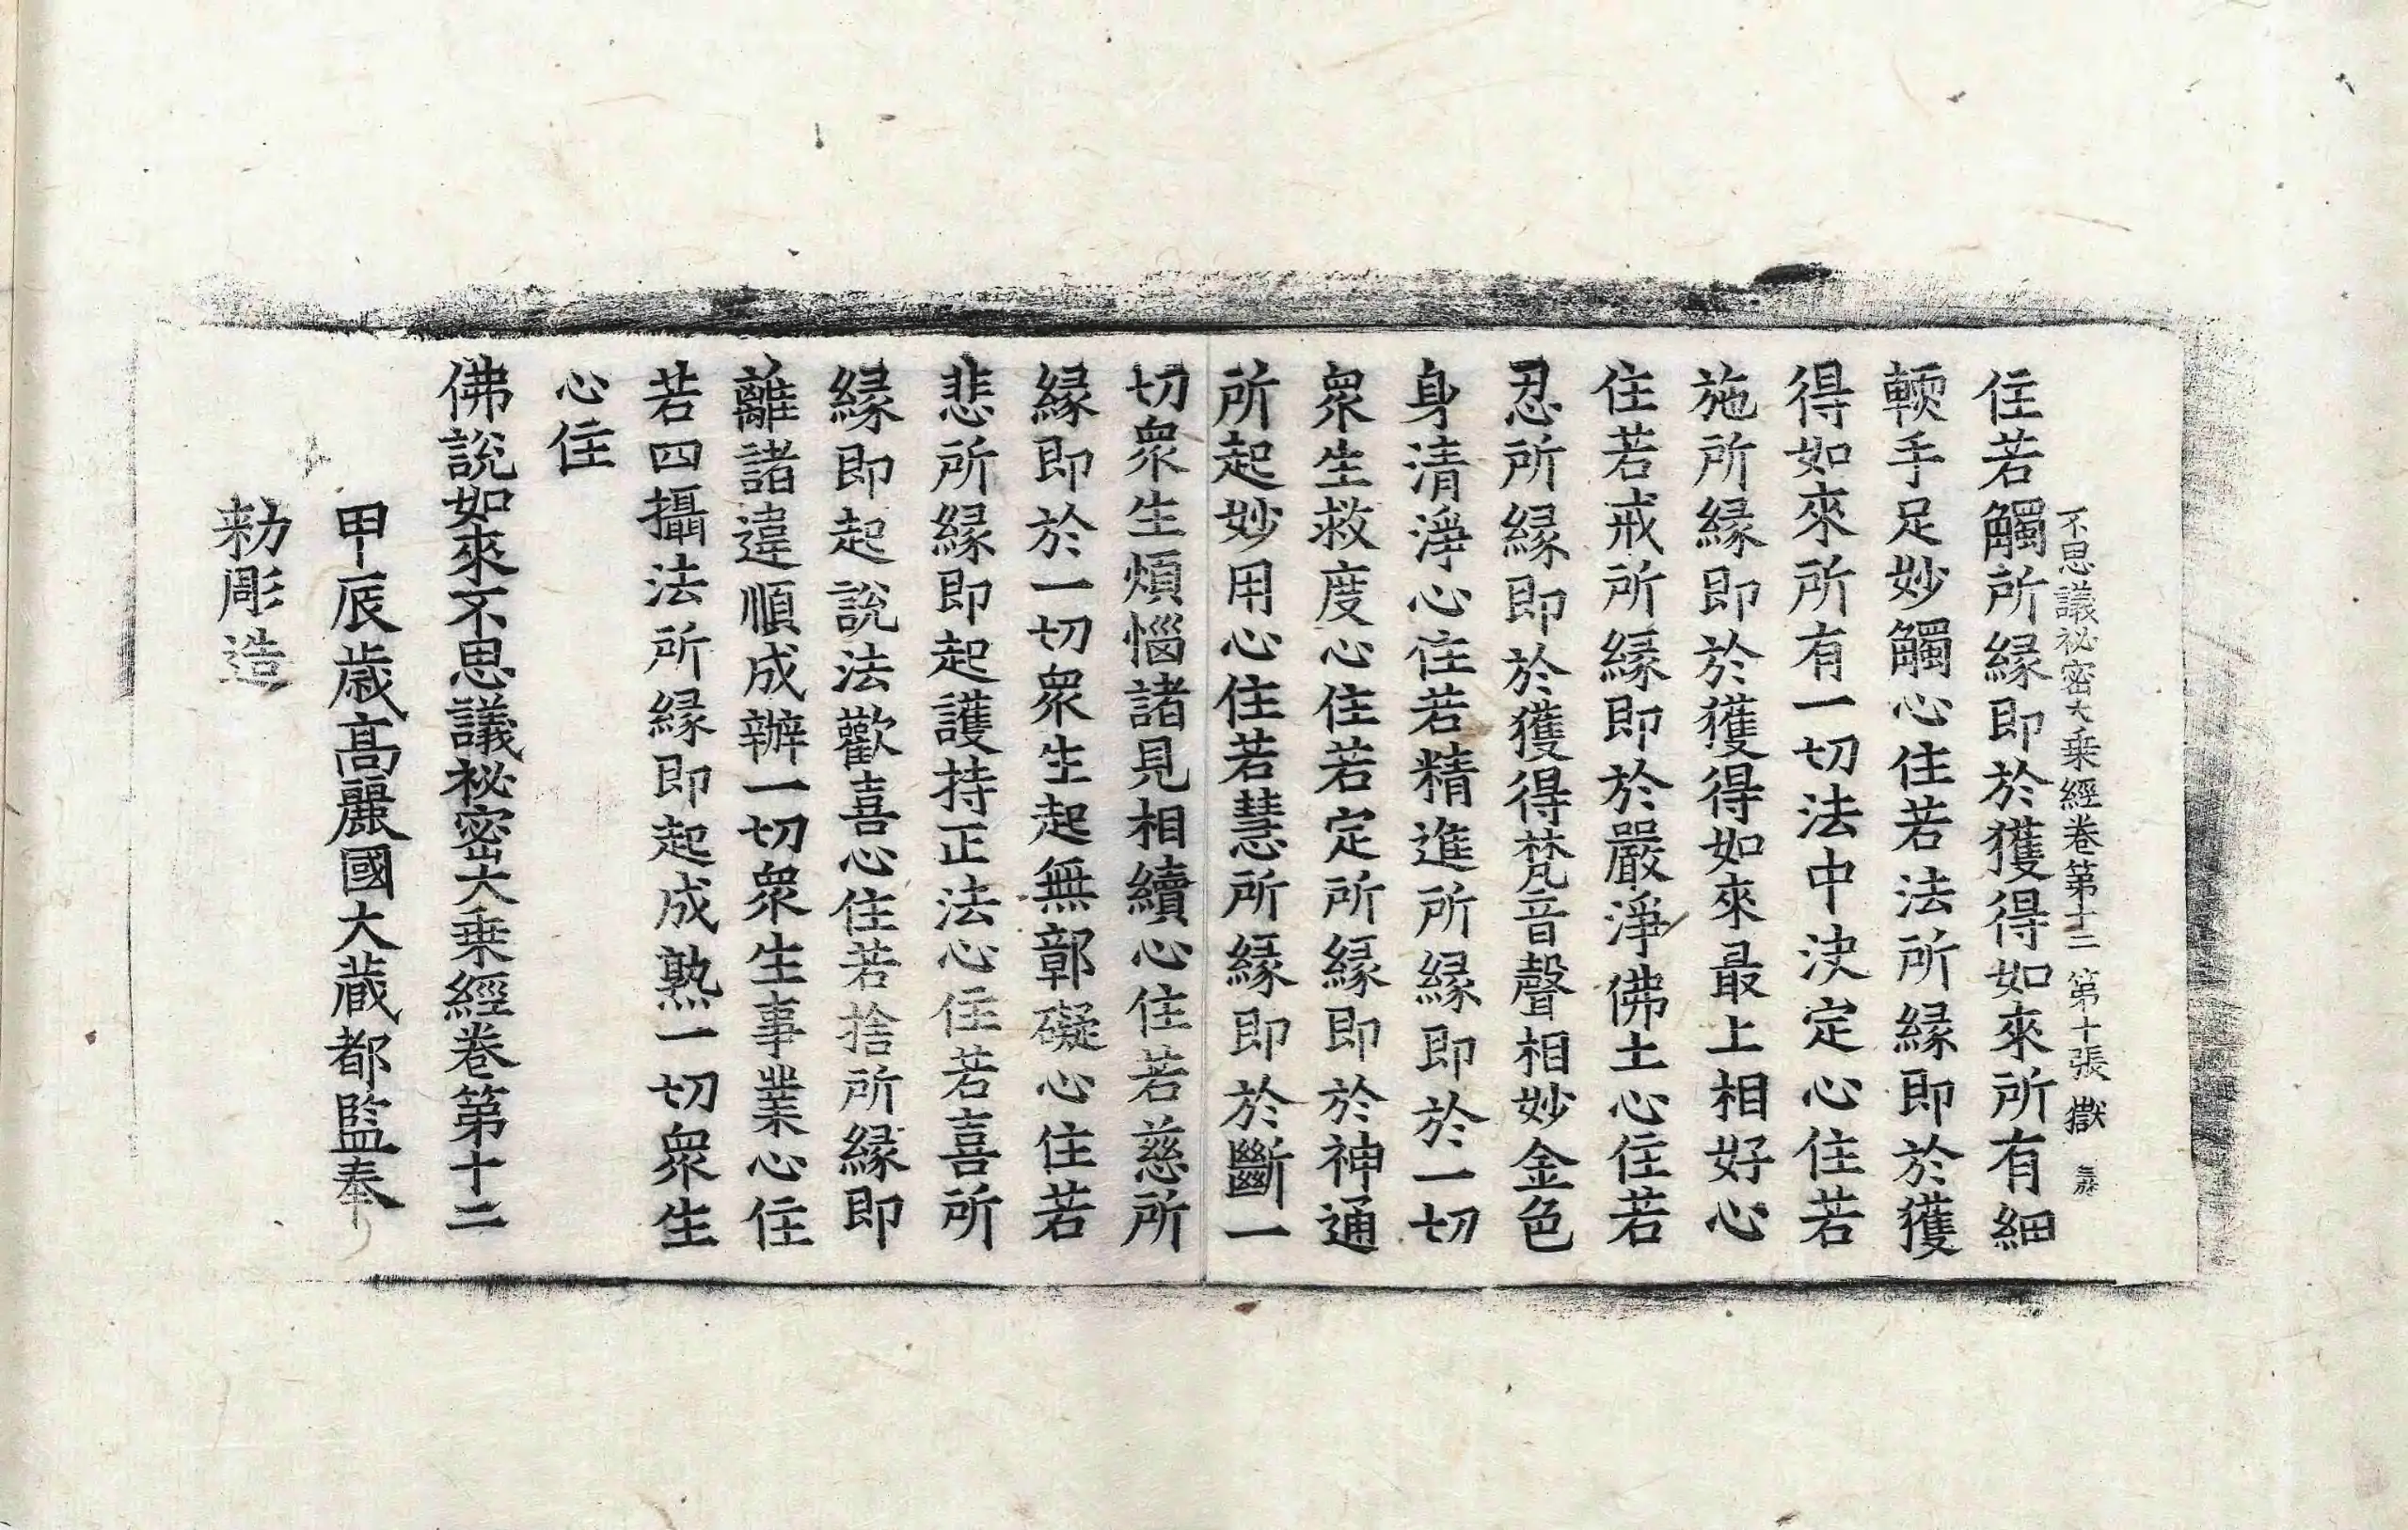 不思議祕密大乗經卷第十二 第十張 獄
住若觸所縁即於獲得如來所有細
輭手足妙觸心住若法所縁即於獲
得如來所有一切法中決定心住若
施所縁即於獲得如來最上相好心
住若戒所縁即於嚴淨佛土心住若
忍所縁即於獲得梵音聲相妙金色
身清淨心住若精進所縁即於一切
衆生救度心住若定所縁即於神通
所起妙用心住若慧所縁即於斷一
切衆生煩惱諸見相續心住若慈所
縁即於一切衆生起無鄣礙心住若
悲所縁即起護持正法心住若喜所
縁即起說法歡喜心住若捨所縁即
離諸違順成辦一切衆生事業心住
若四攝法所縁即起成熟一切衆生
心住
佛說如來不思議祕密大乗經卷第十二
甲辰歳高麗國大藏都監奉
勑彫造